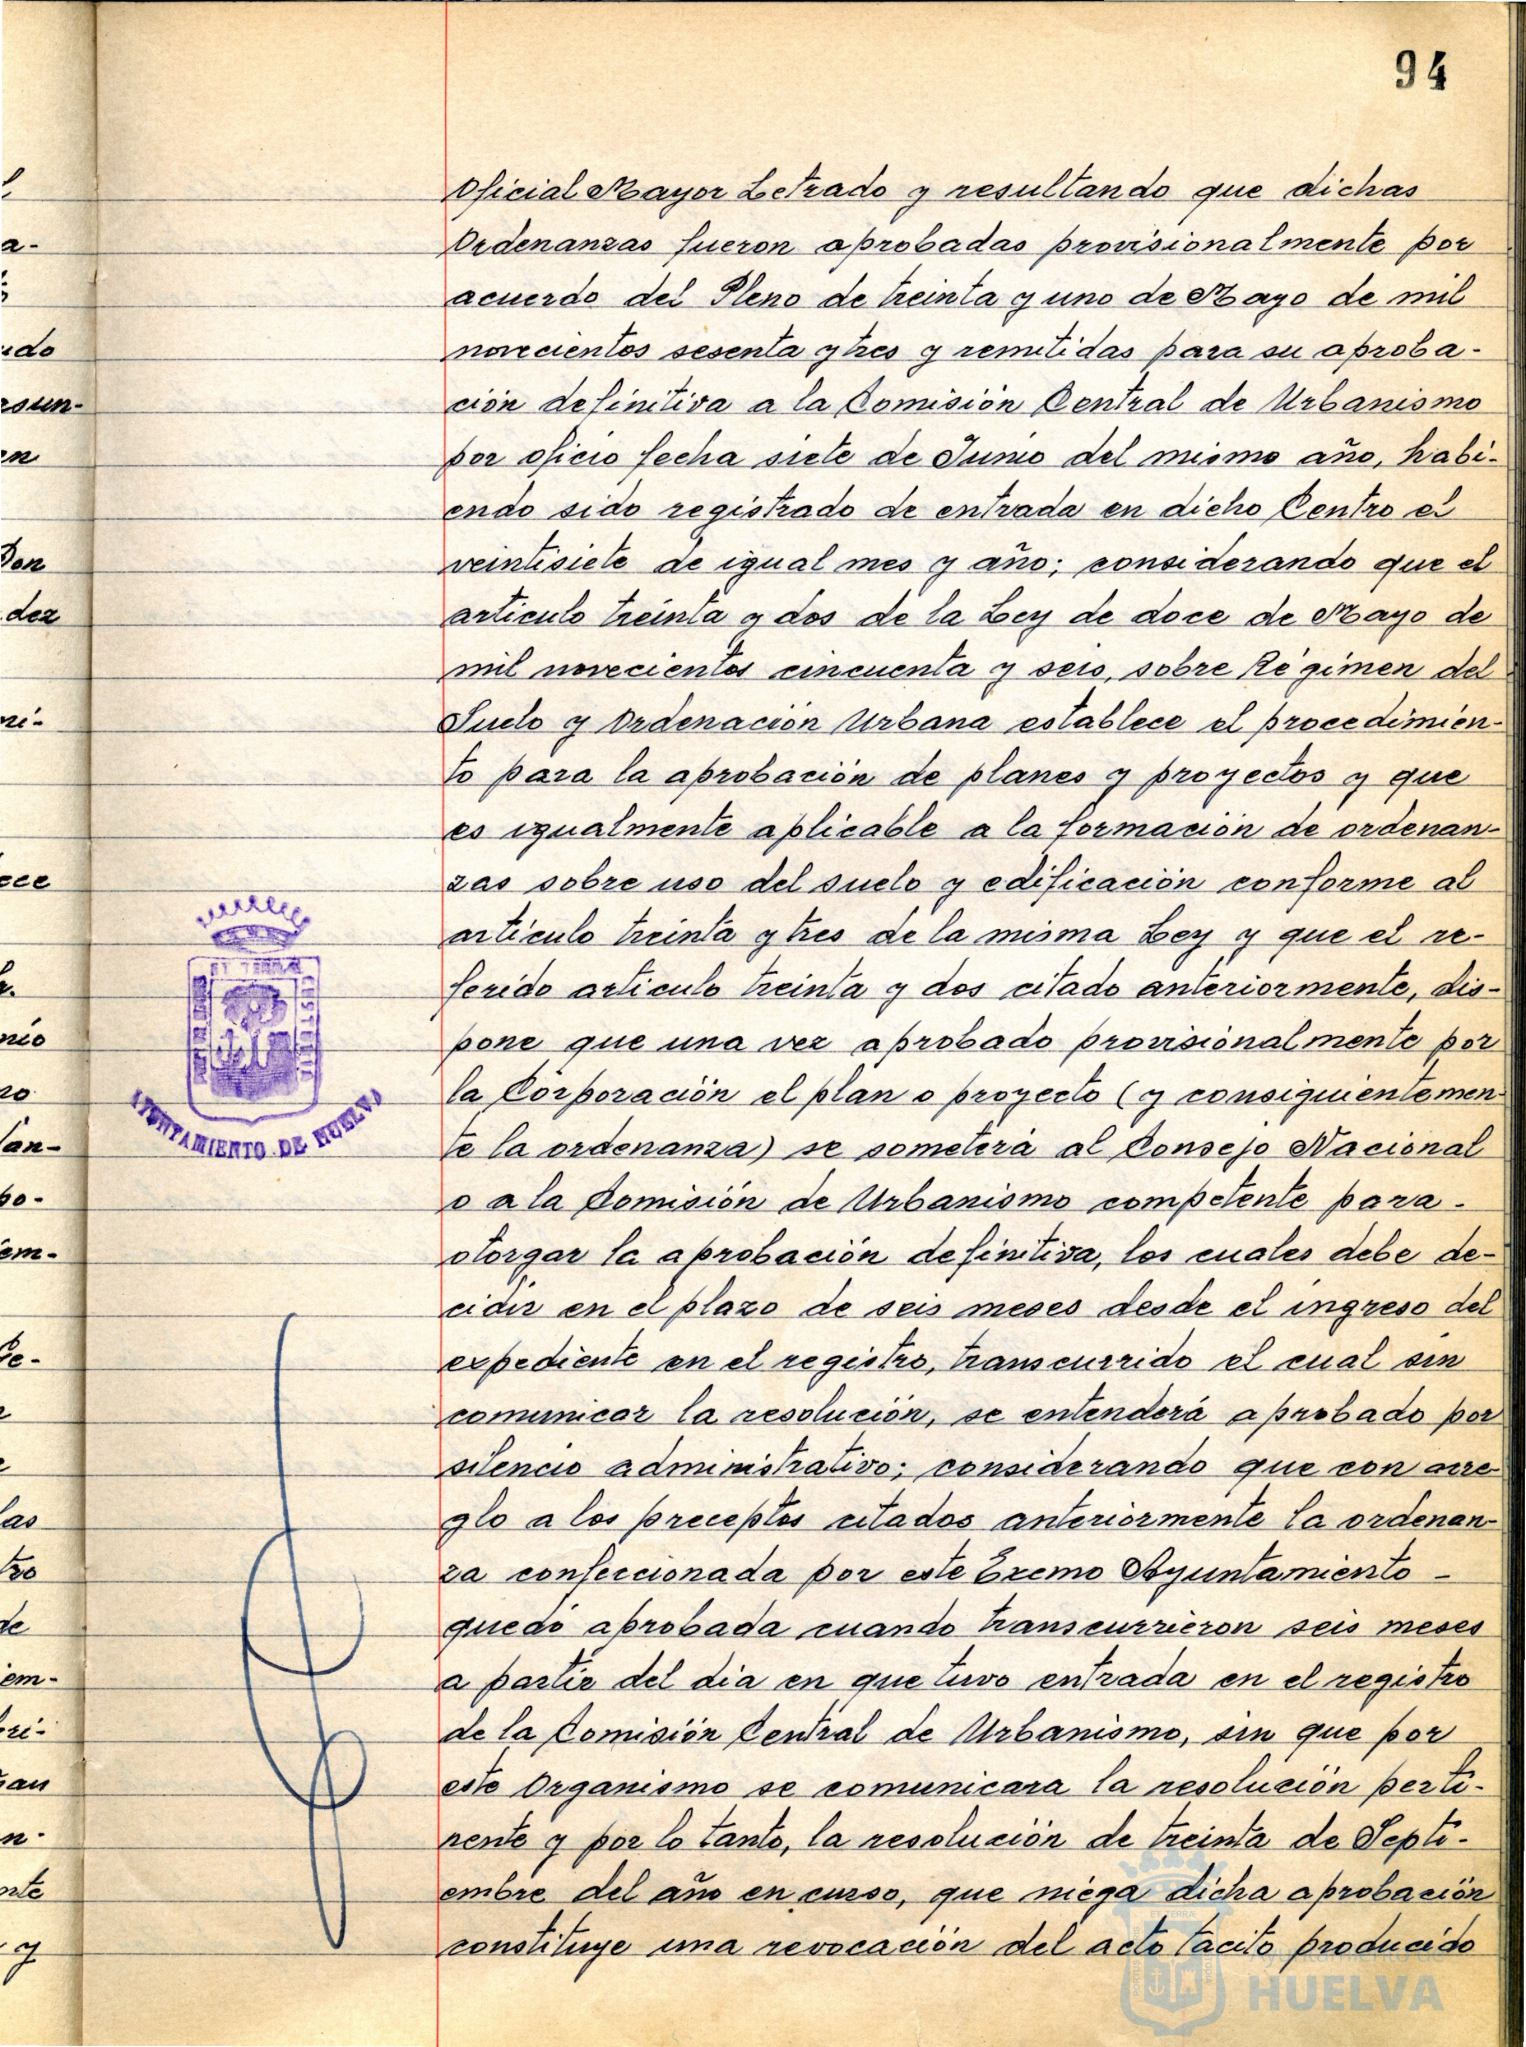 94
Oficial Mayor Letrado y resultando que dichas
Ordenanzas fueron aprobadas provisionalmente por
acuerdo del Pleno de treinta y uno de Mayo de mil
novecientos sesenta y tres y remitidas para su aproba-
ción definitiva a la Comisión Central de Urbanismo
por oficio fecha siete de Junio del mismo año, habi-
endo sido registrado de entrada en dicho Centro el
veintisiete de igual mes y año; considerando que el
articulo treinta y dos de la Ley de doce de Mayo de
mil novecientos cincuenta y seis, sobre Régimen del
Suelo y Ordenación Urbana establece el procedimien-
to para la aprobación de planes y proyectos y que
es igualmente aplicable a la formación de ordenan-
zas sobre uso del suelo y edificación conforme al
articulo treinta y tres de la misma Ley y que el re-
ferido articulo treinta y dos citado anteriormente, dis-
pone que una vez aprobado provisionalmente por
la Corporación el plan o proyecto (y consiguientemen-
te la ordenanza) se someterá al Consejo Nacional
o a la Comisión de Urbanismo competente para -
otorgar la aprobación definitiva, los cuales debe de-
cidir en el plazo de seis meses desde el ingreso del
expediente en el registro, transcurrido el cual sin
comunicar la resolución, se entenderá aprobado por
silencio administrativo; considerando que con arre-
glo a los preceptos citados anteriormente la ordenan-
za confeccionada por este Excmo Ayuntamiento -
quedó aprobada cuando transcurrieron seis meses
a partir del dia en que tuvo entrada en el registro
de la Comisión Central de Urbanismo, sin que por
este Organismo se comunicara la resolución perti-
nente y por lo tanto, la resolución de treinta de Septi-
embre del año en curso, que niega dicha aprobación
constituye una revocación del acto tacito producido
AYUNTAMIENTO DE HUELVA
Ayuntamiento de
HUELVA